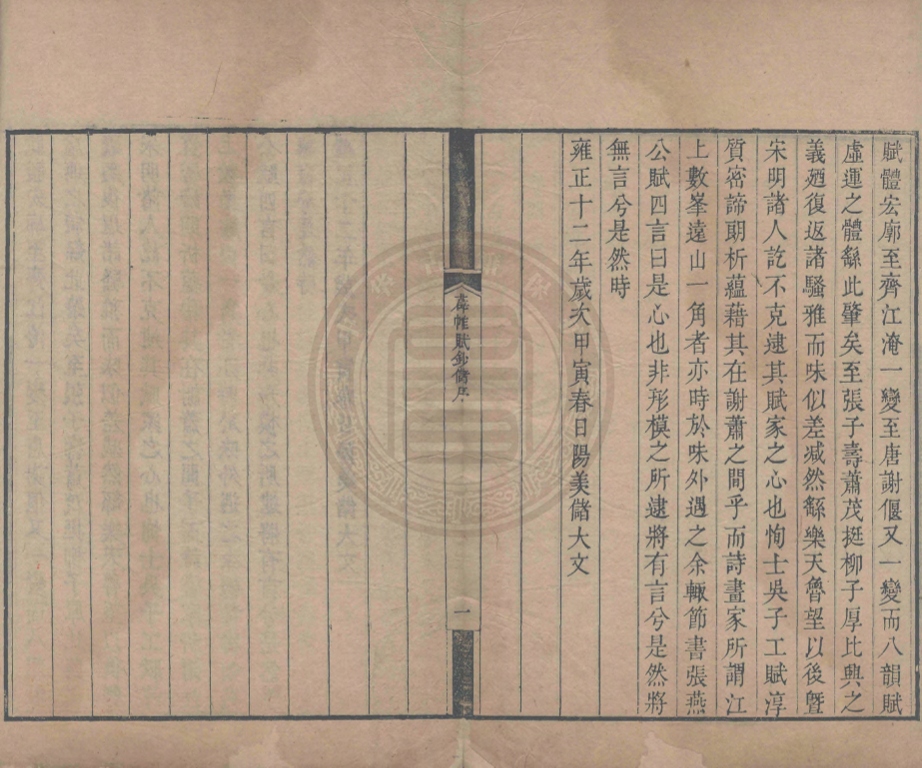 賦體宏廓至齊江淹一變至唐謝偃又一變而八韻賦
虛運之體繇此肇矣至張子壽蕭茂挺柳子厚比興之
義廼復返諸騷雅而味似差減然繇樂天魯望以後曁
宋明諸人訖不克逮其賦家之心也恂士吳子工賦淳
質密諦朗析蘊藉其在謝蕭之間乎而詩畫家所謂江
上數峯遠山一角者亦時於味外遇之余輙節書張燕
公賦四言曰是心也非形模之所逮將有言兮是然將
無言兮是然時
雍正十二年歲次甲寅春日陽美儲大文
帷賦鈔儲序
一